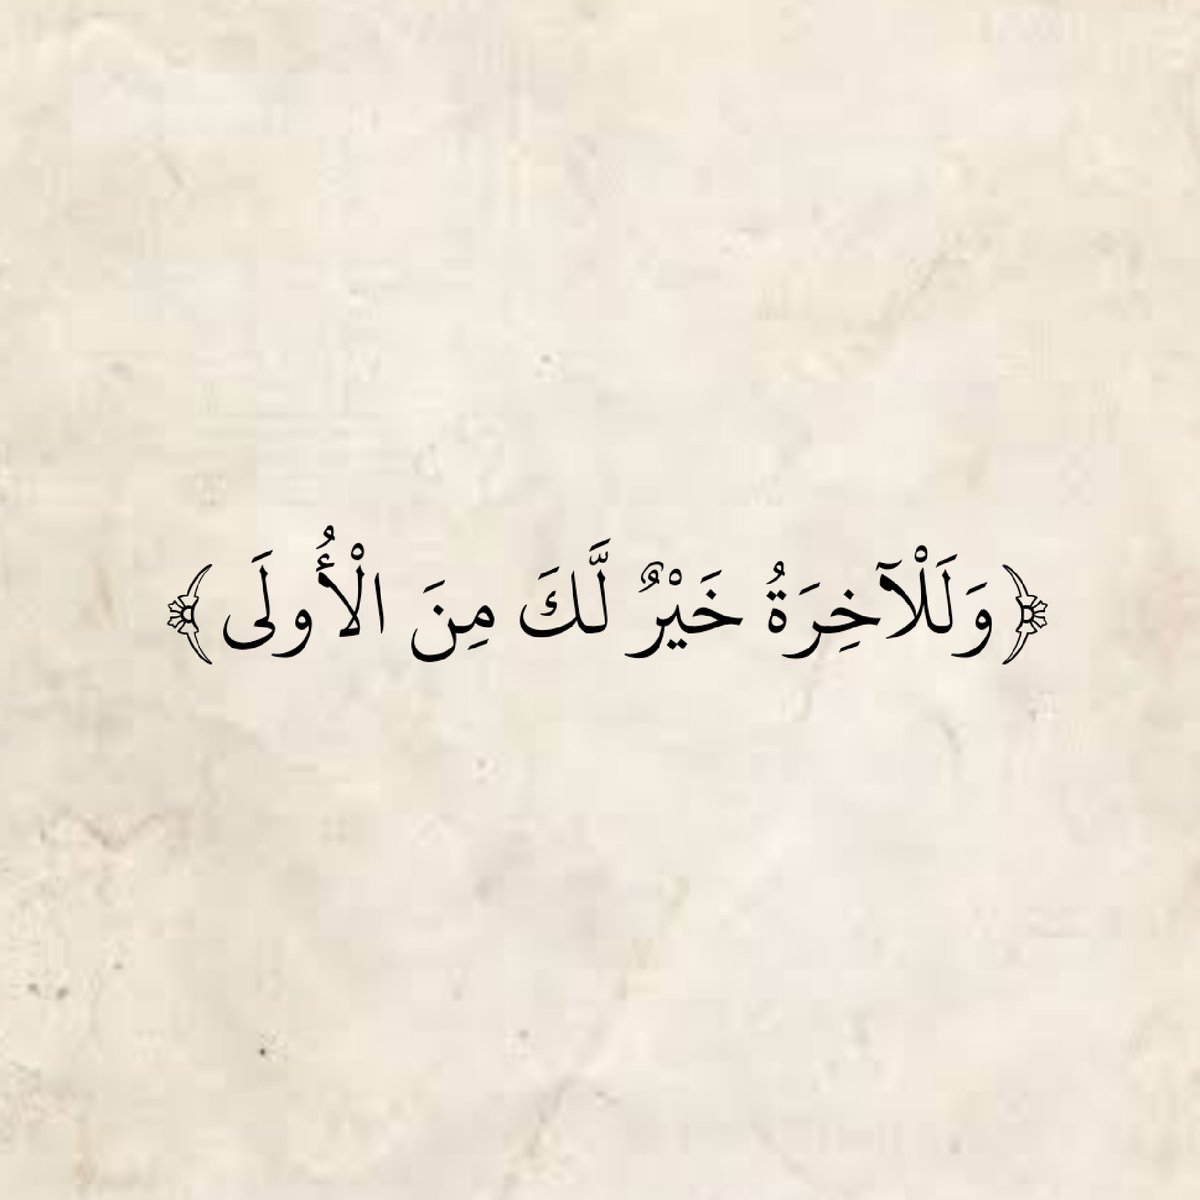 ﴿وَلَلْآخِرَةُ خَيْرٌ لَّكَ مِنَ الْأُولَى﴾